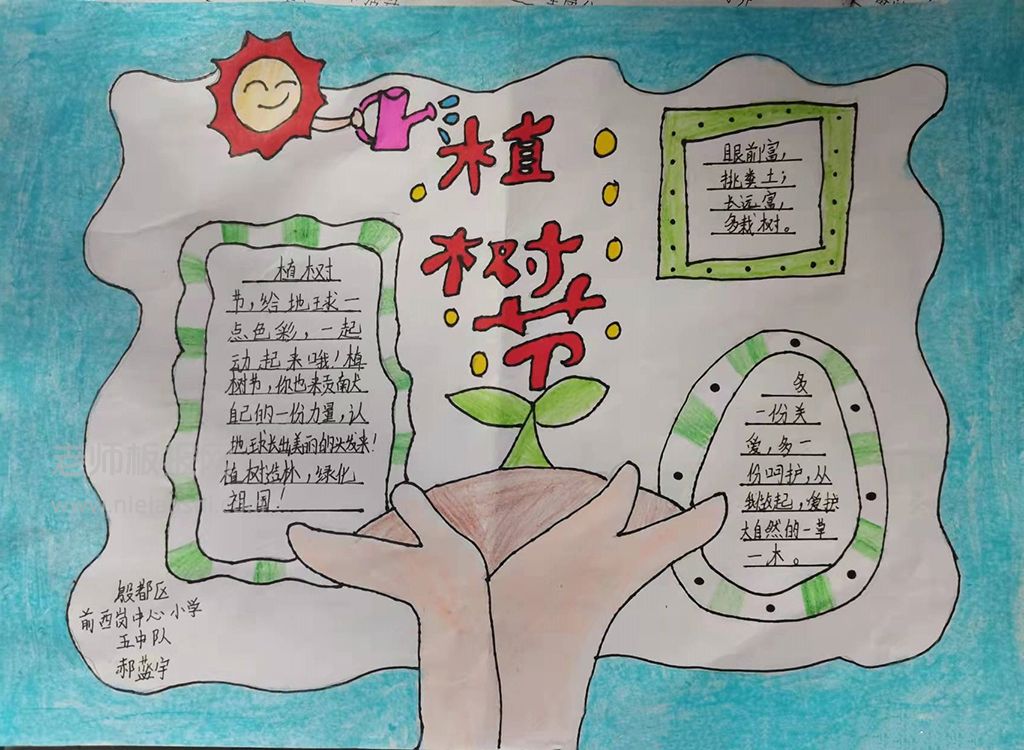 植
树
节
植树
节，给地球一
点色彩，一起
动起来哦！植
树节，你也来贡献
自己的一份力量，让
地球长出美丽的头发来！
植树造林，绿化
祖国！
眼前富，
挑粪土；
长远富，
多栽树。
多
一份关
爱，多一
份呵护，从
我做起，爱护
大自然的一草
一木。
殷都区
前西岗中心小学
五中队
郝蓝宇